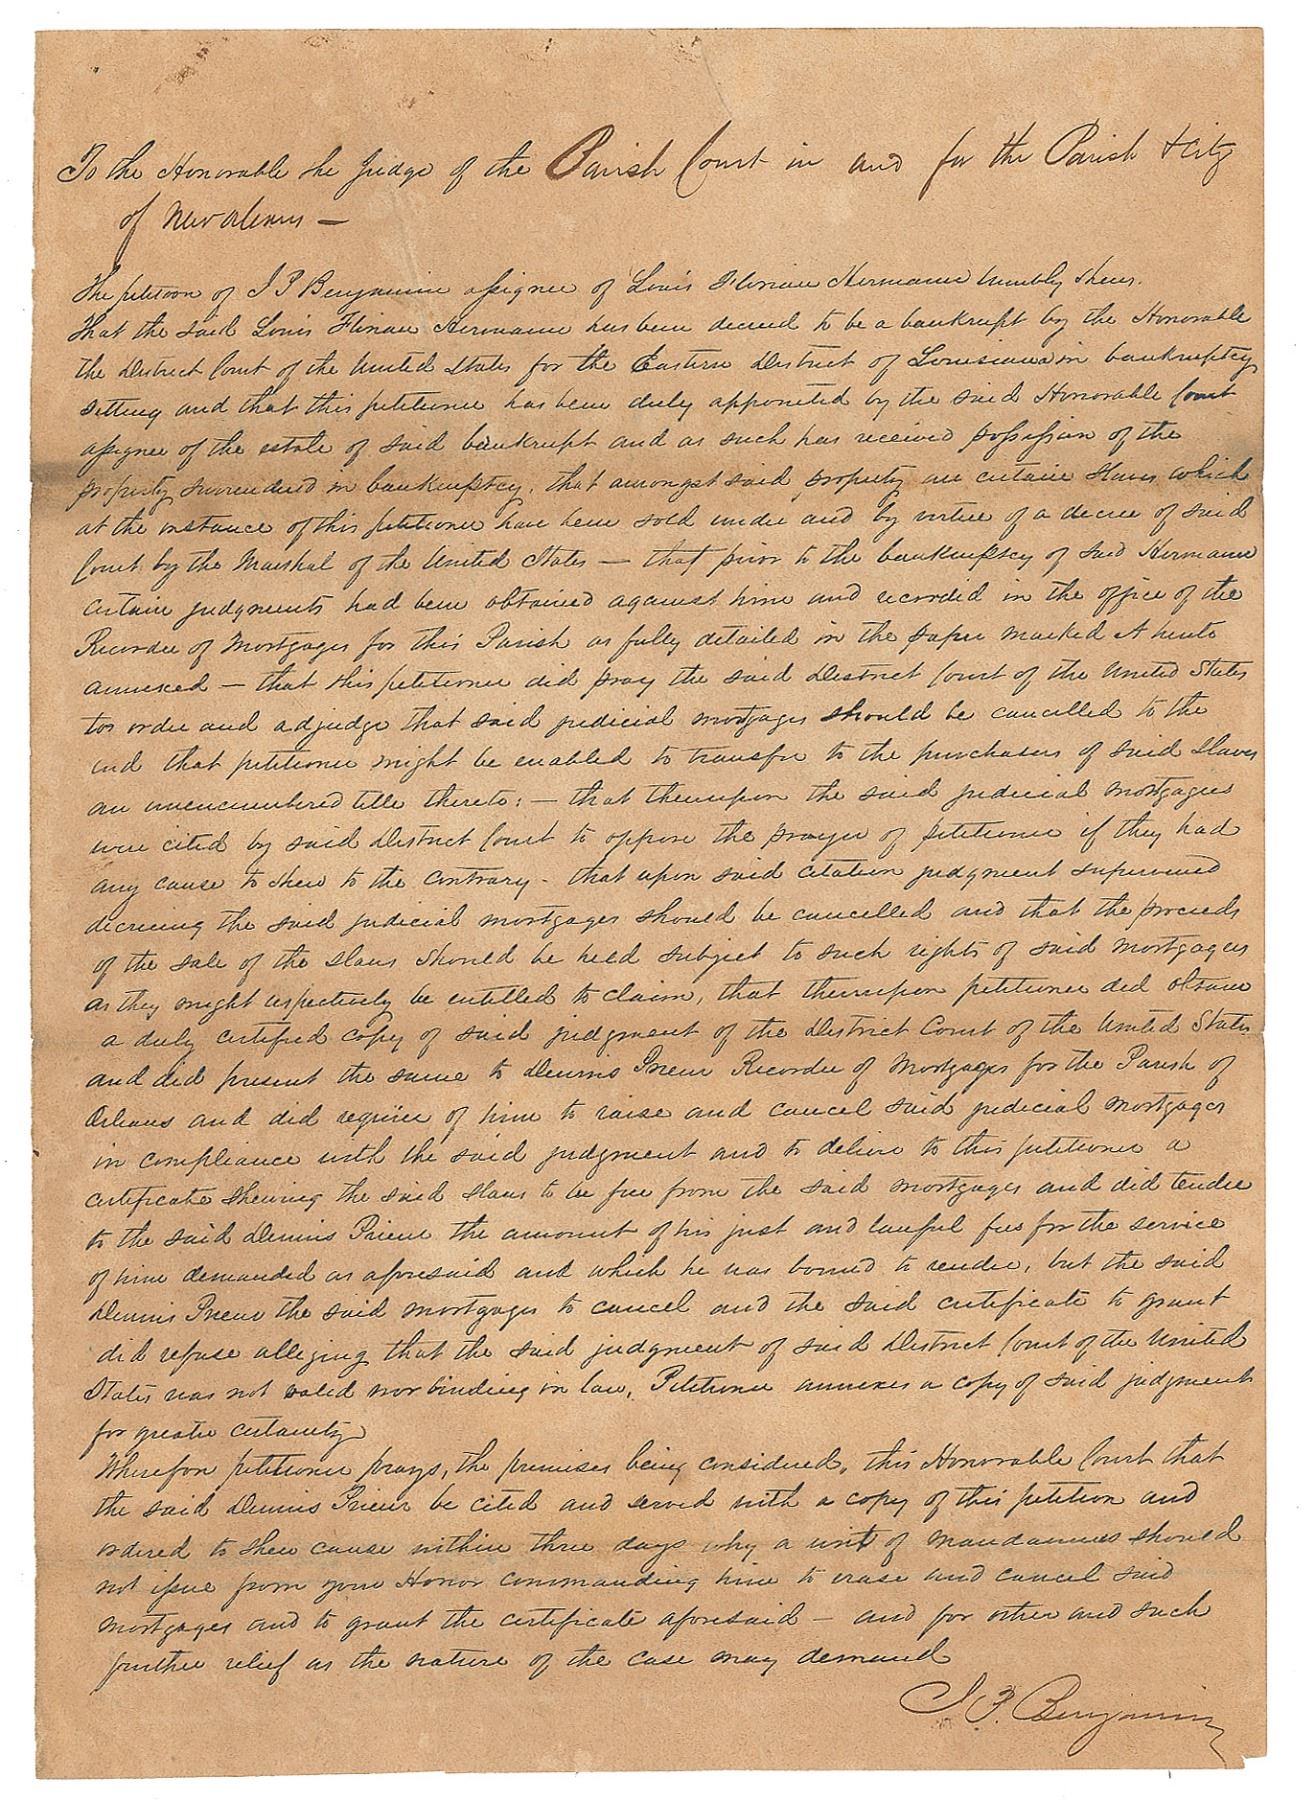 To the Honorable the Judge of the Parish Court in and for the Parish & City
of New Orleans —
The petition of J P Benjamin assignee of Louis Florian Hermann humbly shews.
That the said Louis Florian Hermann has been decreed to be a bankrupt by the Honorable
the District Court of the United States for the Eastern District of Louisiana in bankruptcy
sitting and that this petitioner has been duly appointed by the said Honorable Court
assignee of the estate of said bankrupt and as such has received possession of the
property surrendered in bankruptcy, that amongst said property are certain slaves which
at the instance of this petitioner have been sold under and by virtue of a decree of said
Court by the Marshal of the United States — that prior to the bankruptcy of said Hermann
certain judgments had been obtained against him and recorded in the office of the
Recorder of Mortgages for this Parish as fully detailed in the paper marked A hereto
annexed — that this petitioner did pray the said District Court of the United States
to order and adjudge that said judicial mortgages should be cancelled to the
end that petitioner might be enabled to transfer to the purchasers of said slaves
an unencumbered title thereto: — that thereupon the said judicial mortgagees
were cited by said District Court to oppose the prayer of petitioner if they had
any cause to shew to the contrary - that upon said citation judgment supervened
decreeing the said judicial mortgages should be cancelled and that the proceeds
of the sale of the slaves should be held subject to such rights of said mortgagees
as they might respectively be entitled to claim, that thereupon petitioner did obtain
a duly certified copy of said judgment of the District Court of the United States
and did present the same to Dennis Prieur Recorder of Mortgages for the Parish of
Orleans and did require of him to raise and cancel said judicial mortgages
in compliance with the said judgment and to deliver to this petitioner a
certificate shewing the said slaves to be free from the said mortgages and did tender
to the said Dennis Prieur the amount of his just and lawful fees for the service
of him demanded as aforesaid and which he was bound to render, but the said
Dennis Prieur the said mortgages to cancel and the said certificate to grant
did refuse alleging that the said judgment of said District Court of the United
States was not valid nor binding in law, Petitioner annexes a copy of said judgment
for greater certainty
Wherefore petitioner prays, the premises being considered, this Honorable Court that
the said Dennis Prieur be cited and served with a copy of this petition and
ordered to shew cause within three days why a writ of mandamus should
not issue from your Honor commanding him to erase and cancel said
mortgages and to grant the certificate aforesaid — and for other and such
further relief as the nature of the case may demand
J. P. Benjamin